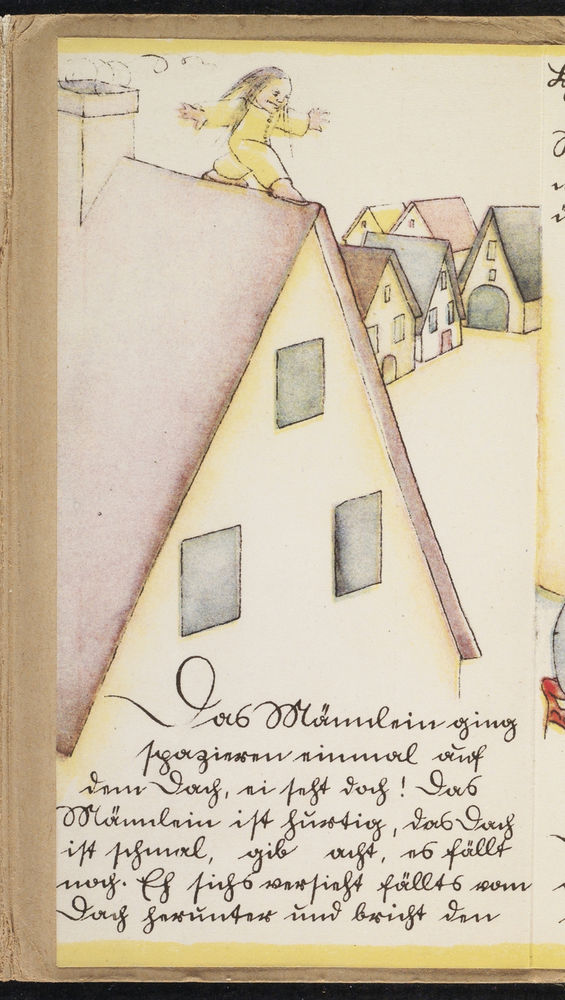 Das Männlein ging
spazieren einmal auf
dem Dach, ei seht doch! Das
Männlein ist hurtig, das Dach
ist schmal, gib acht, es fällt
noch. Eh sichs versieht fällts vom
Dach herunter und bricht den